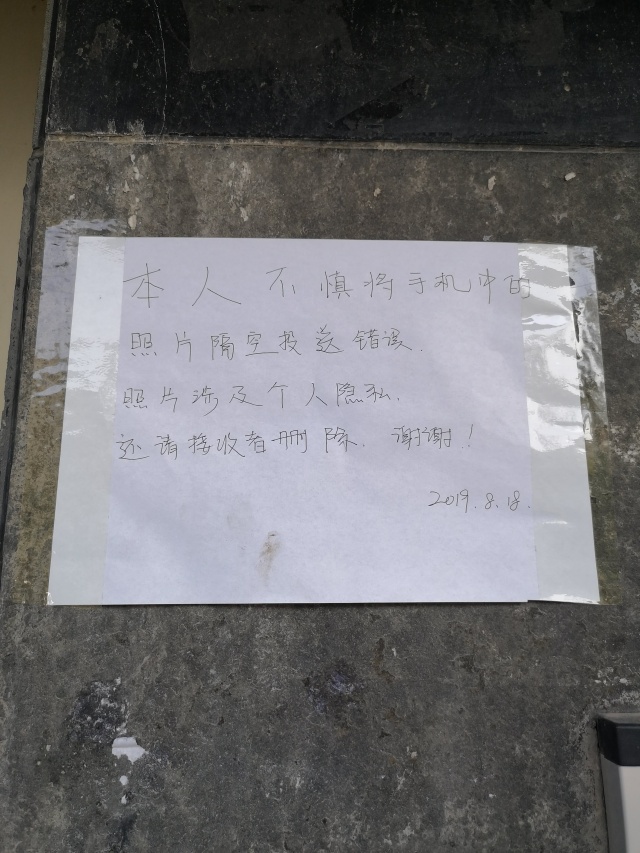 本人不慎将手机中的
照片隔空投送错误.
照片涉及个人隐私.
还请接收者删除. 谢谢!
2019.8.18.